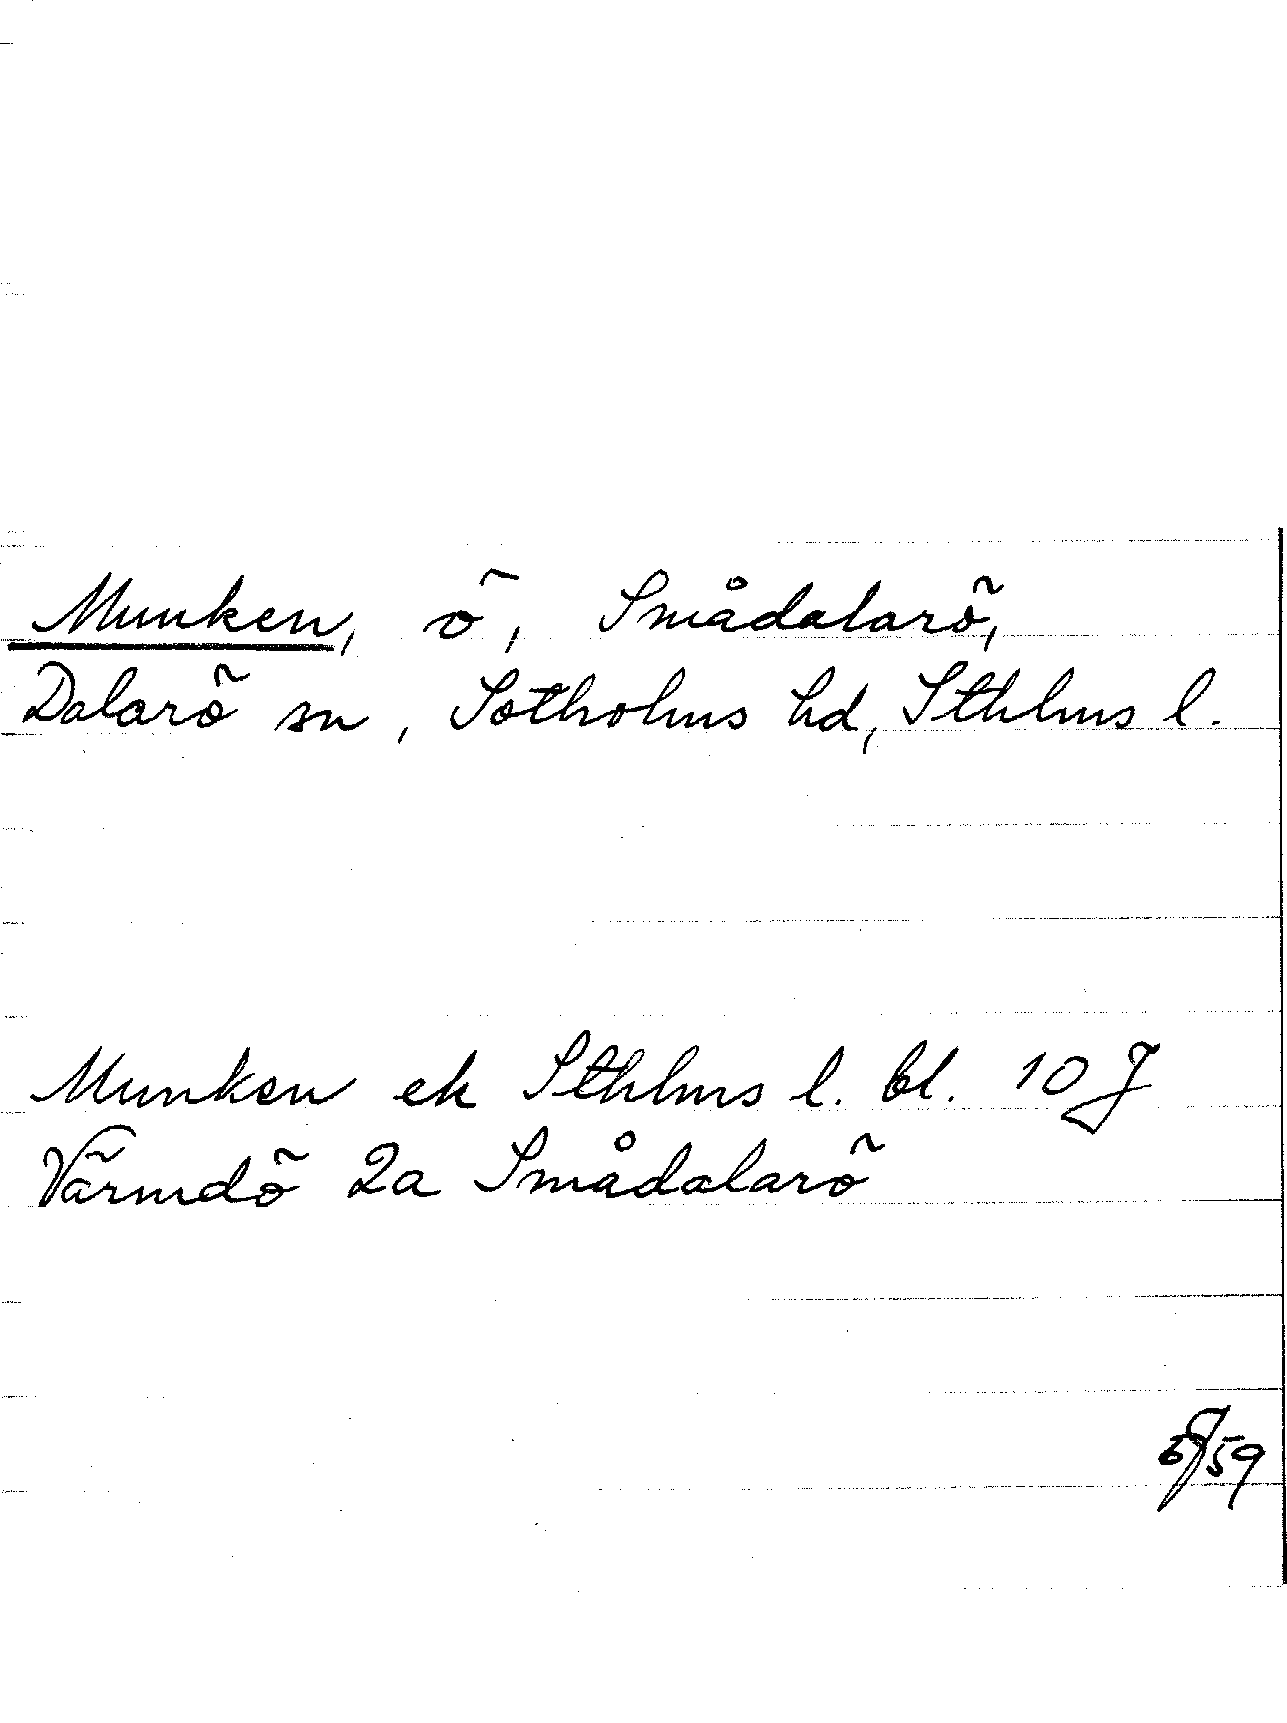 Munken, ö, Smådalarö,
Dalarö sn, Sotholms hd, Sthlms l.
Munken ek Sthlms l. bl. 10 J
Värmdö 2a Smådalarö